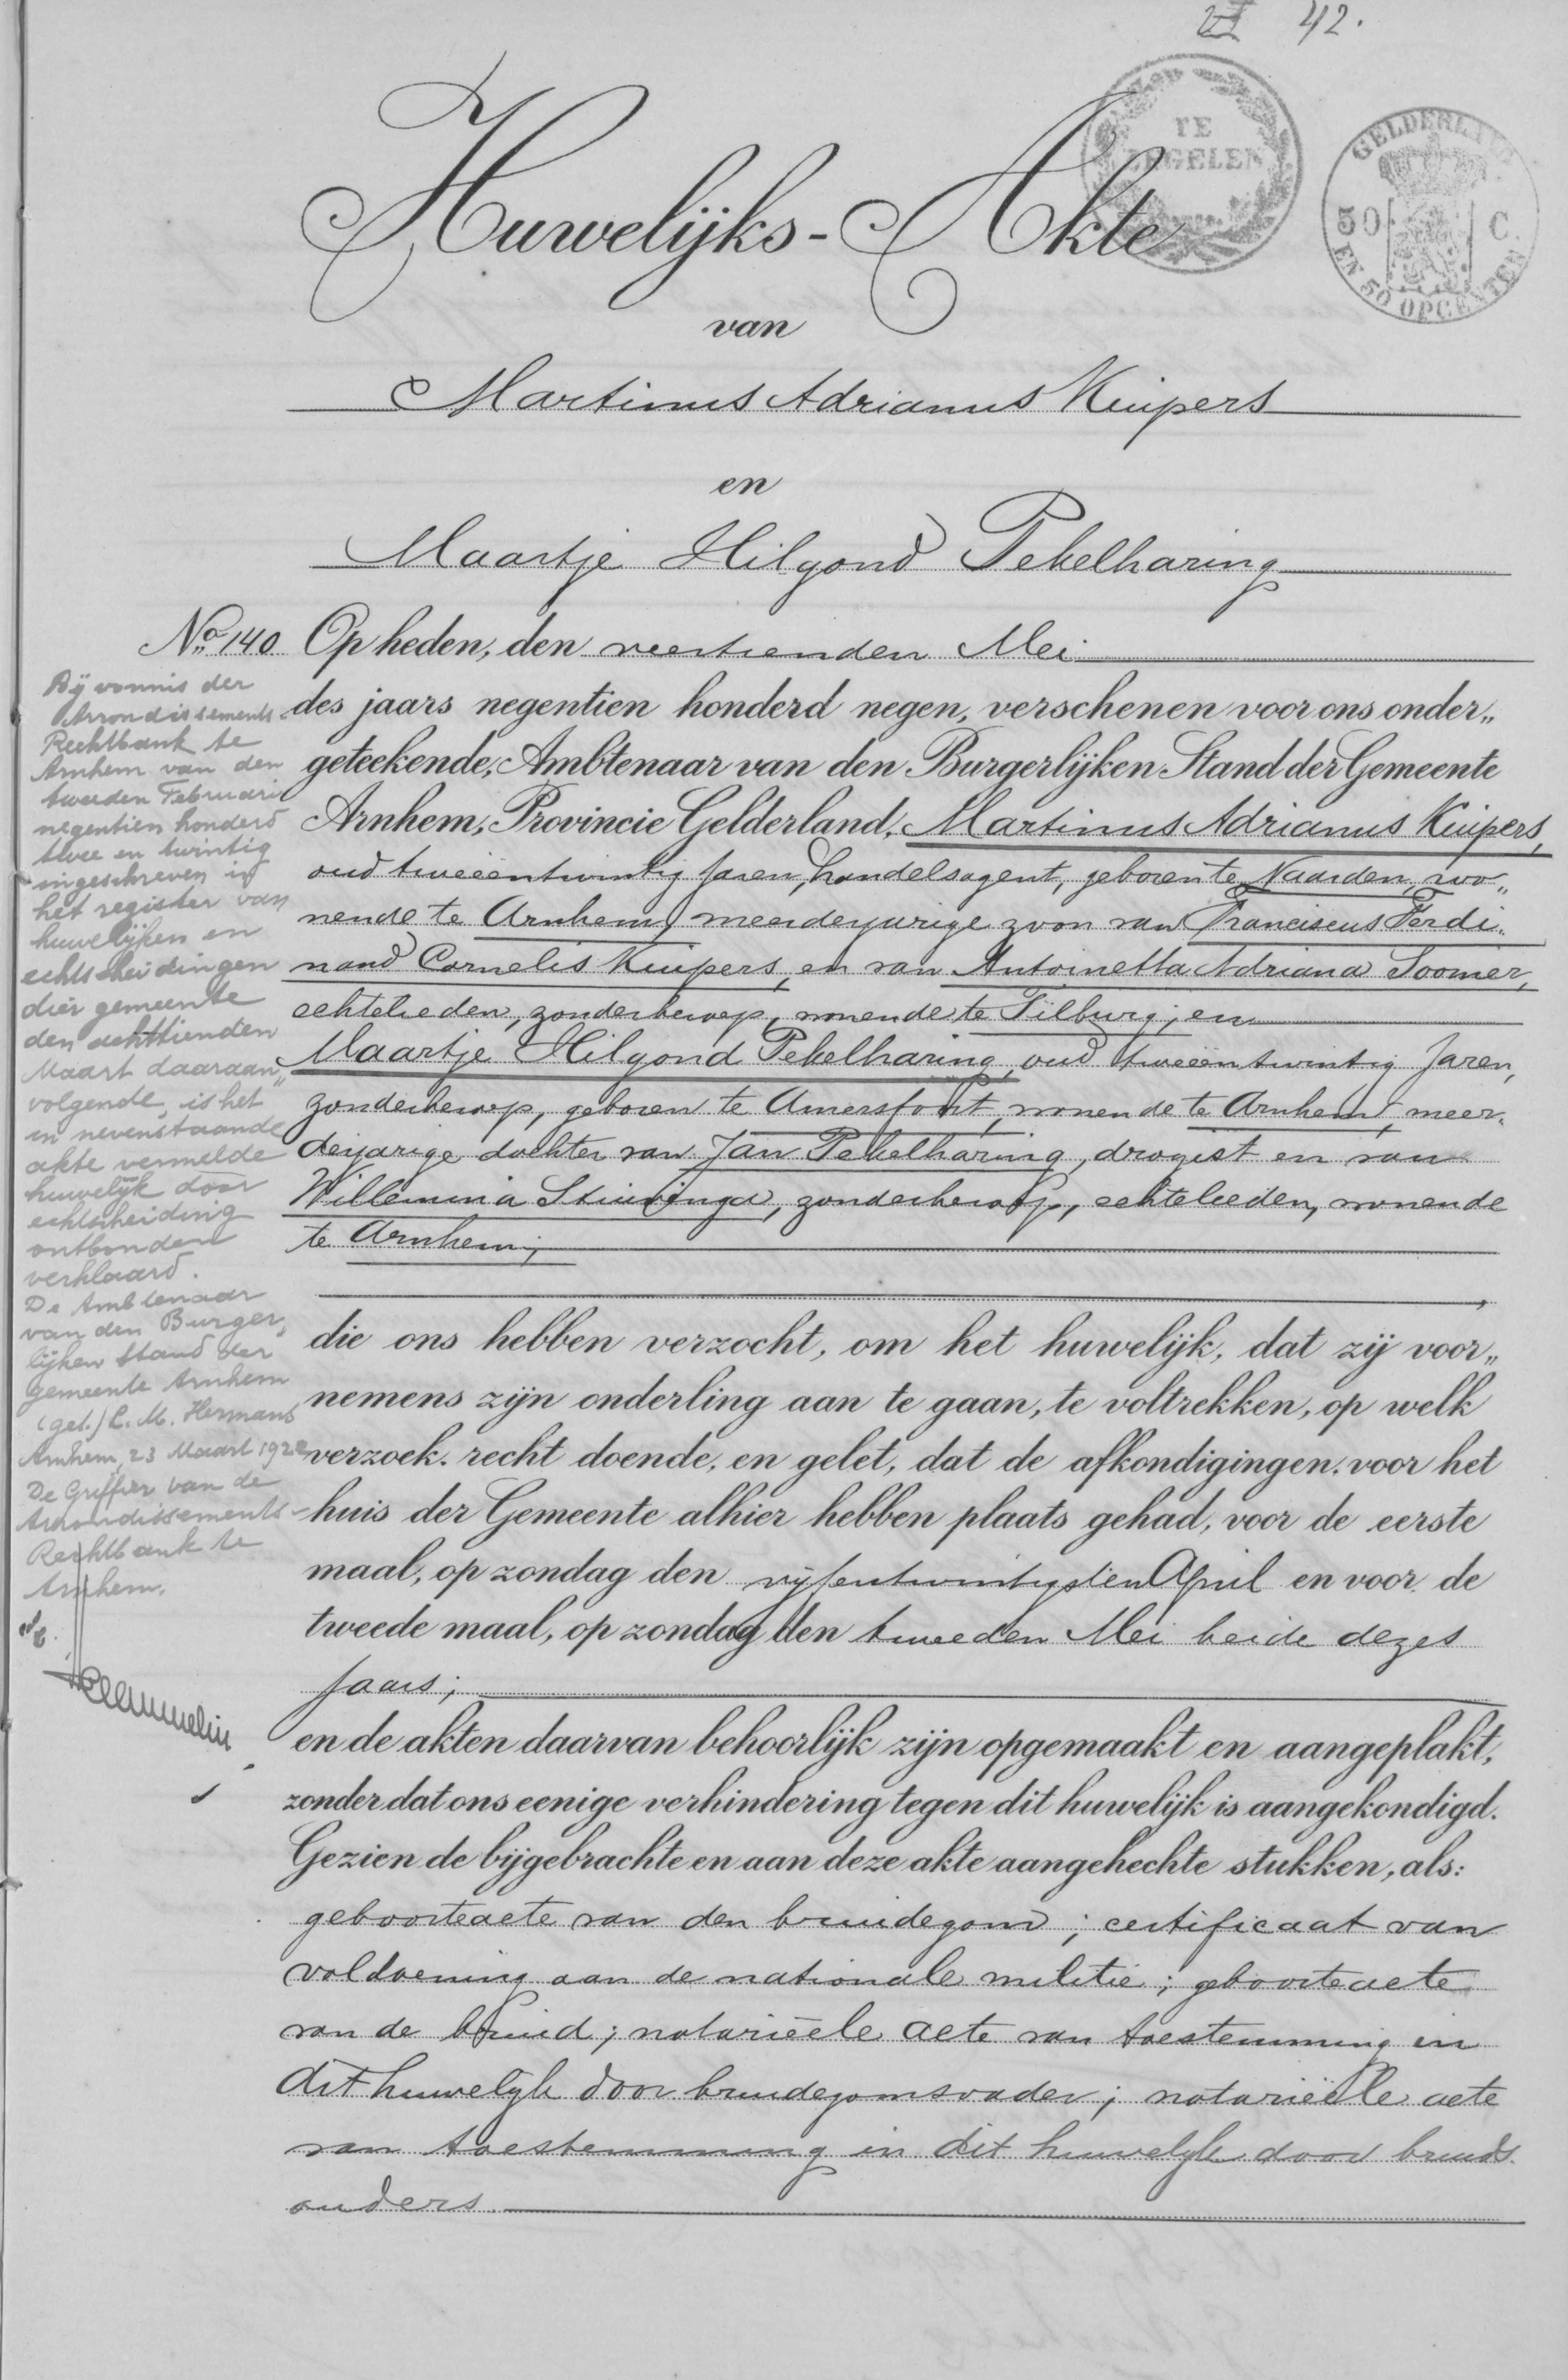 42.
TE
ZEGELEN
GELDERLAND
50 C.
EN 50 OPCENTEN
Huwelijks-Akte
van
Martinus Adrianus Kuipers
en
Maartje Hilgond Pekelharing
No. 140 Op heden, den veertienden Mei
des jaars negentien honderd negen, verschenen voor ons onder„
geteekende, Ambtenaar van den Burgerlijken Stand der Gemeente
Arnhem, Provincie Gelderland, Martinus Adrianus Kuipers,
oud tweeëntwintig Jaren, handelsagent, geboren te Naarden, wo„
nende te Arnhem, meerderjarige zoon van Franciscus Ferdi„
nand Cornelis Kuipers, en van Antoinetta Adriana Soomer,
echtelieden, zonder beroep, wonende te Tilburg; en
Maartje Hilgond Pekelharing, oud tweeëntwintig Jaren,
zonder beroep, geboren te Amersfoort, wonende te Arnhem, meer„
derjarige dochter van Jan Pekelharing, drogist en van
Willemina Stuivinga, zonder beroep, echtelieden, wonende
te Arnhem;
die ons hebben verzocht, om het huwelijk, dat zij voor„
nemens zijn onderling aan te gaan, te voltrekken, op welk
verzoek recht doende, en gelet, dat de afkondigingen voor het
huis der Gemeente alhier hebben plaats gehad, voor de eerste
maal, op zondag den vijfentwintigsten April en voor de
tweede maal, op zondag den tweeden Mei beide dezes
Jaars;
en de akten daarvan behoorlijk zijn opgemaakt en aangeplakt,
zonder dat ons eenige verhindering tegen dit huwelijk is aangekondigd.
Gezien de bijgebrachte en aan deze akte aangehechte stukken, als:
geboorteacte van den bruidegom; certificaat van
voldoening aan de nationale militie; geboorteacte
van de bruid; notarieële acte van toestemming in
dit huwelijk door bruidegomsvader; notarieële acte
van toestemming in dit huwelijk door bruids
ouders
Bij vonnis der
Arrondissements-
Rechtbank te
Arnhem van den
tweeden Februari
negentien honderd
twee en twintig
ingeschreven in
het register van
huwelijken en
echtscheidingen
dier gemeente
den achttienden
Maart daaraan„
volgende, is het
in nevenstaande
akte vermelde
huwelijk door
echtscheiding
ontbonden
verklaard.
De Ambtenaar
van den Burger„
lijken Stand der
gemeente Arnhem
(get.) C. M. Hermans
Arnhem, 23 Maart 1922
De Griffier van de
Arrondissements-
Rechtbank te
Arnhem.